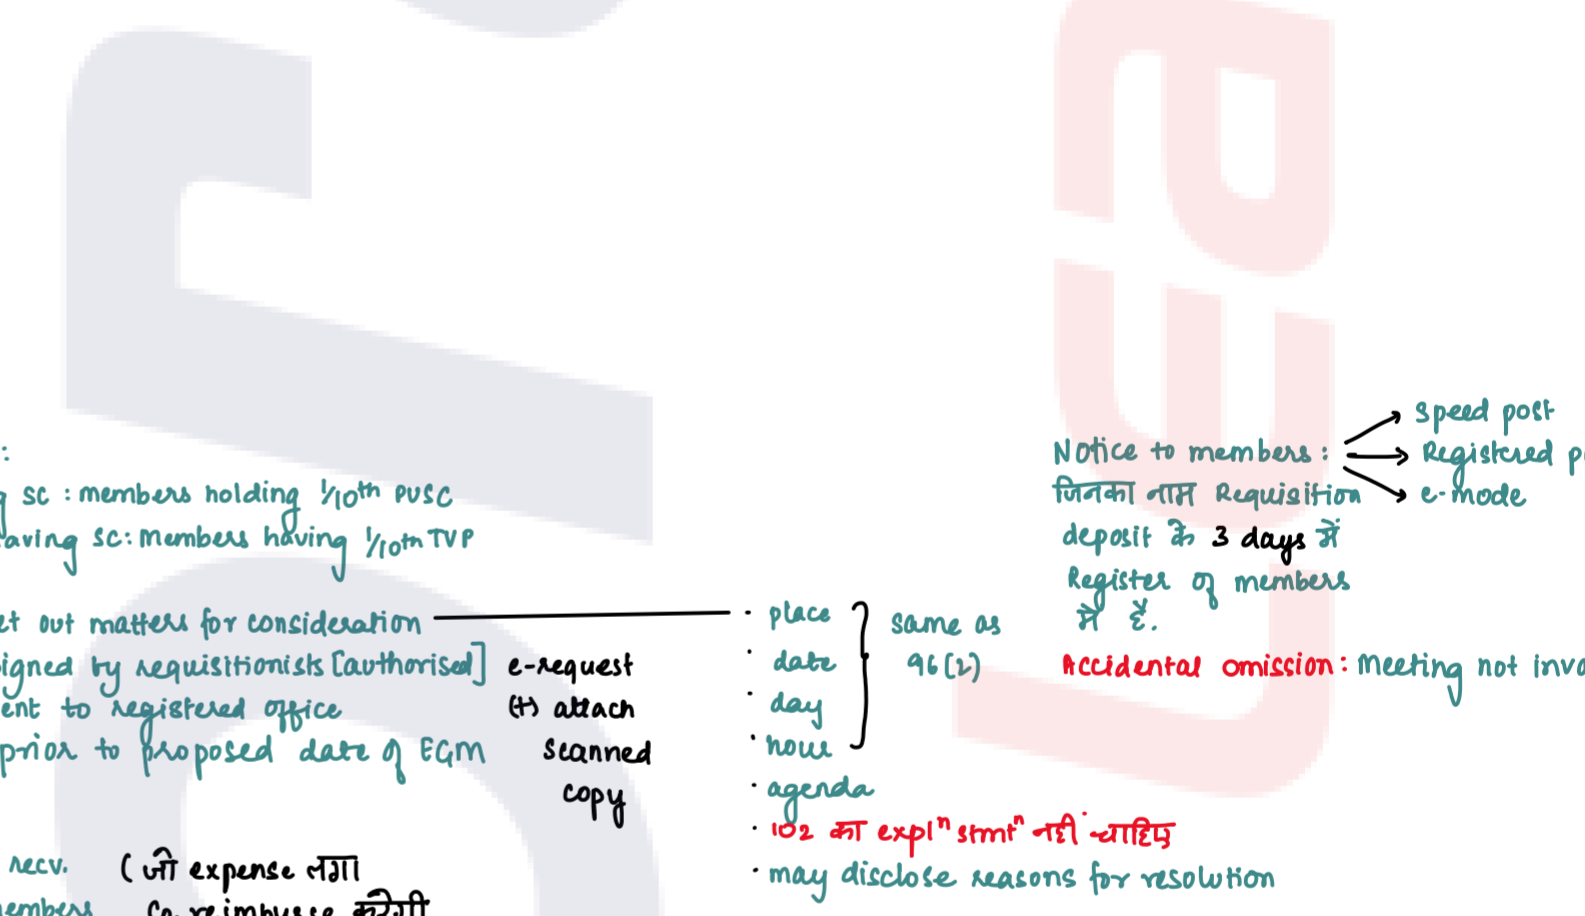 :
SC : members holding 1/10th PUSC
aving SC: Members having 1/10th TVP
et out matters for consideration
igned by requisitionists [authorised]
ent to registered office
prior to proposed date of EGM
e-request
(+) attach
scanned
copy
recv.
embers
( जो expense लगा
Co. reimburse करेगी
· place
· date
· day
· hour
same as
96(2)
· agenda
· 102 का explⁿ stmtⁿ नहीं चाहिए
· may disclose reasons for resolution
Notice to members :
जिनका नाम Requisition
deposit के 3 days में
Register of members
में हैं.
Speed post
Registered p
e-mode
Accidental omission: Meeting not inva